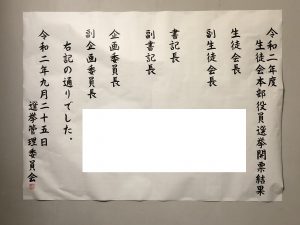 令和二年度
生徒会本部役員選挙開票結果
生徒会長
副生徒会長
書記長
副書記長
企画委員長
副企画委員長
右記の通りでした。
令和二年九月二十五日
選挙管理委員会